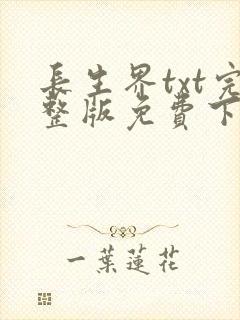 長生界txt完
整版免費下
一葉蓮花